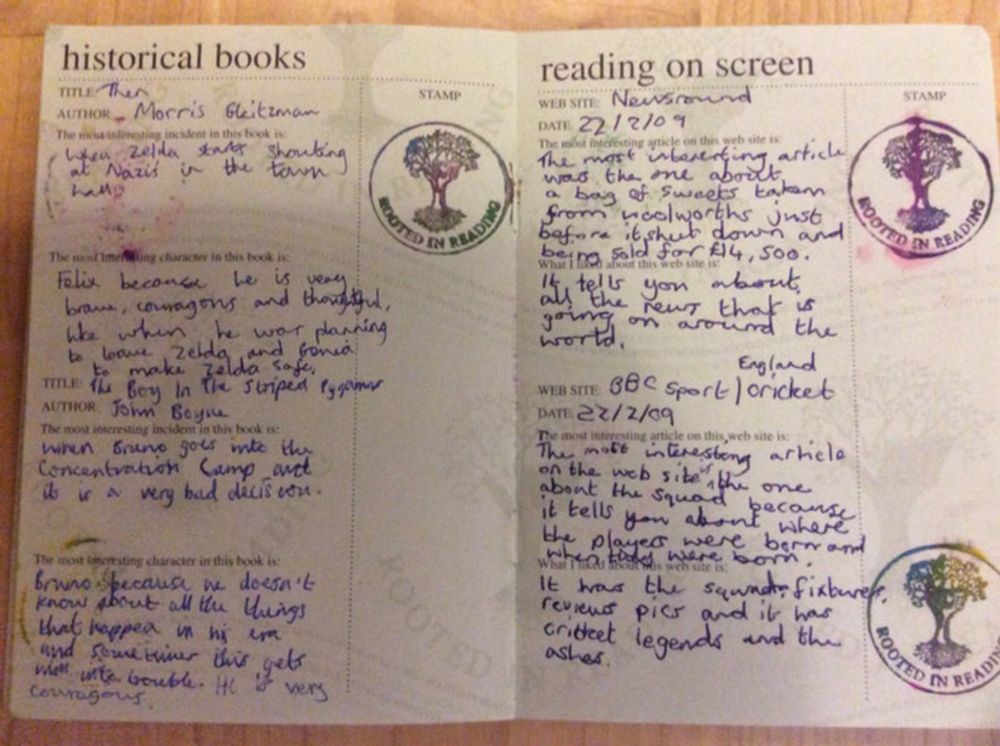 historical books
TITLE: Then
STAMP
AUTHOR: Morris Gleitzman
The most interesting incident in this book is:
When Zelda starts shouting
at Nazis in the town
hall
ROOTED IN READING
The most interesting character in this book is:
Felix because he is very
brave, couragous and thoughtful,
like when he was planning
to leave Zelda and Genia
to make Zelda safe.
TITLE: The Boy In The Striped Pyjamas
AUTHOR: John Boyne
The most interesting incident in this book is:
When Bruno goes into the
Concentration Camp and
it is a very bad decision.
The most interesting character in this book is:
Bruno because he doesn't
know about all the things
that happen in his era
and sometimes this gets
into trouble. He is very
couragous.
reading on screen
WEB SITE: Newsround
STAMP
DATE: 22/2/09
The most interesting article on this web site is:
The most interesting article
was the one about
a bag of sweets taken
from woolworths just
before it shut down and
being sold for £14,500.
ROOTED IN READING
What I liked about this web site is:
It tells you about
all the news that is
going on around the
world.
England
WEB SITE: BBC Sport/Cricket
DATE: 22/2/09
The most interesting article on this web site is:
The most interesting article
on the web site is the one
about the squad because
it tells you about where
the players were born and
when they were born.
What I liked about this web site is:
It has the squad, fixtures,
reviews pics and it has
cricket legends and the
ashes.
ROOTED IN READING